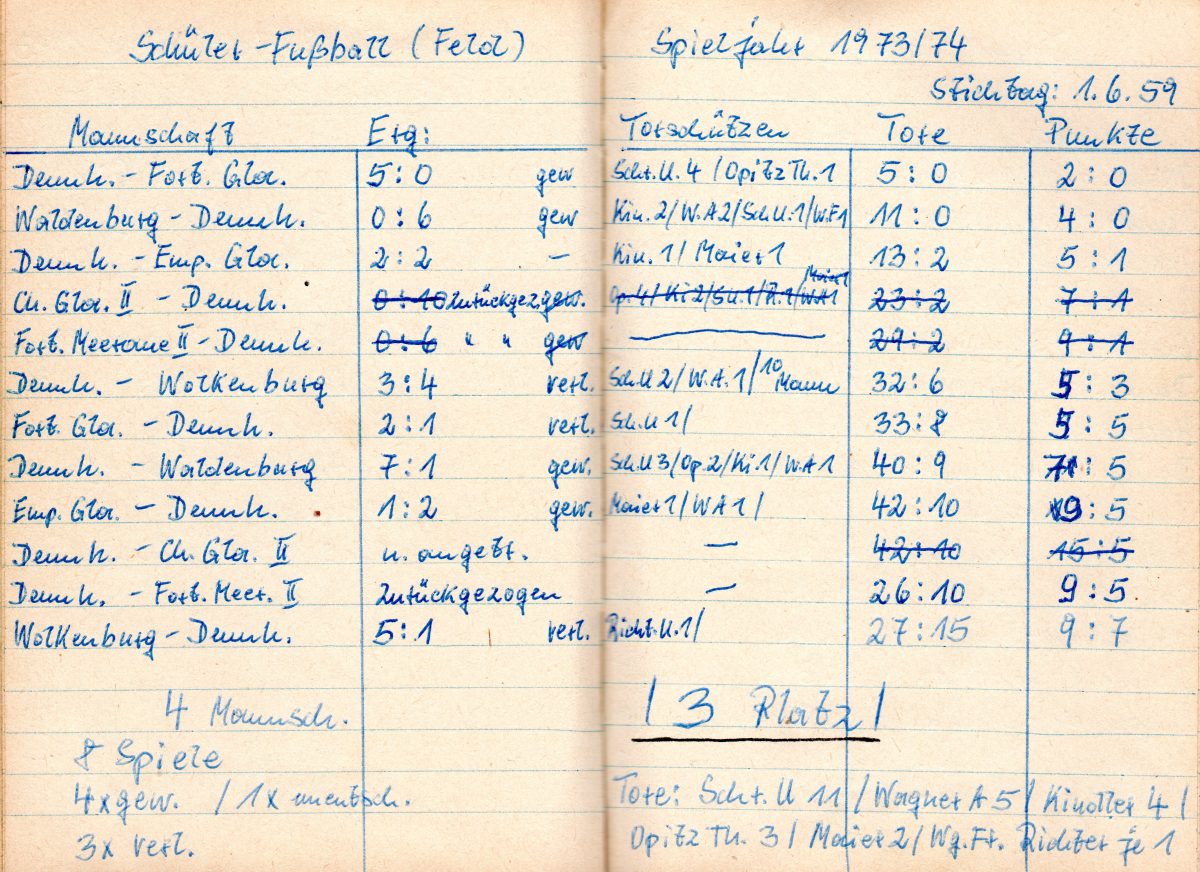 Schüler-Fußball (Feld) Spieljahr 1973/74
Stichtag: 1.6.59
Mannschaft Erg: Torschützen Tore Punkte
Dennh. - Fort. Gla. 5:0 gew Schr.U. 4 / Opitz Th. 1 5:0 2:0
Waldenburg - Dennh. 0:6 gew Kin. 2/W.A2/Sch.U.1/W.F1 11:0 4:0
Dennh. - Emp. Gla. 2:2 - Kin. 1/ Maier 1 13:2 5:1
Maier 1
Ch. Gla. II - Dennh. 0:10 zurückgez. gew. Op.4/Ki2/Sch.1/R.1/WA1 23:2 7:1
Fort. Meerane II - Dennh. 0:6 " " gew 29:2 9:1
Dennh. - Wolkenburg 3:4 verl. Sch.U 2/ W.A. 1/ 10 Mann 32:6 5:3
Fort. Gla. - Dennh. 2:1 verl. Sch.U 1/ 33:8 5:5
Dennh. - Waldenburg 7:1 gew. Sch.U 3/Op.2/Ki 1/ W.A 1 40:9 7:5
Emp. Gla. - Dennh. 1:2 gew. Maier 1/ W A 1/ 42:10 9:5
Dennh. - Ch. Gla. II n. anget. - 42:10 15:5
Dennh. - Fort. Meer. II zurückgezogen - 26:10 9:5
Wolkenburg - Dennh. 5:1 verl. Richt.U.1/ 27:15 9:7
4 Mannsch. / 3 Platz /
8 Spiele
4x gew. / 1x unentsch. Tore: Schr. U 11 / Wagner A 5 / Kindler 4 /
3x verl. Opitz Th. 3 / Maier 2 / Wg. Fr. Richter je 1